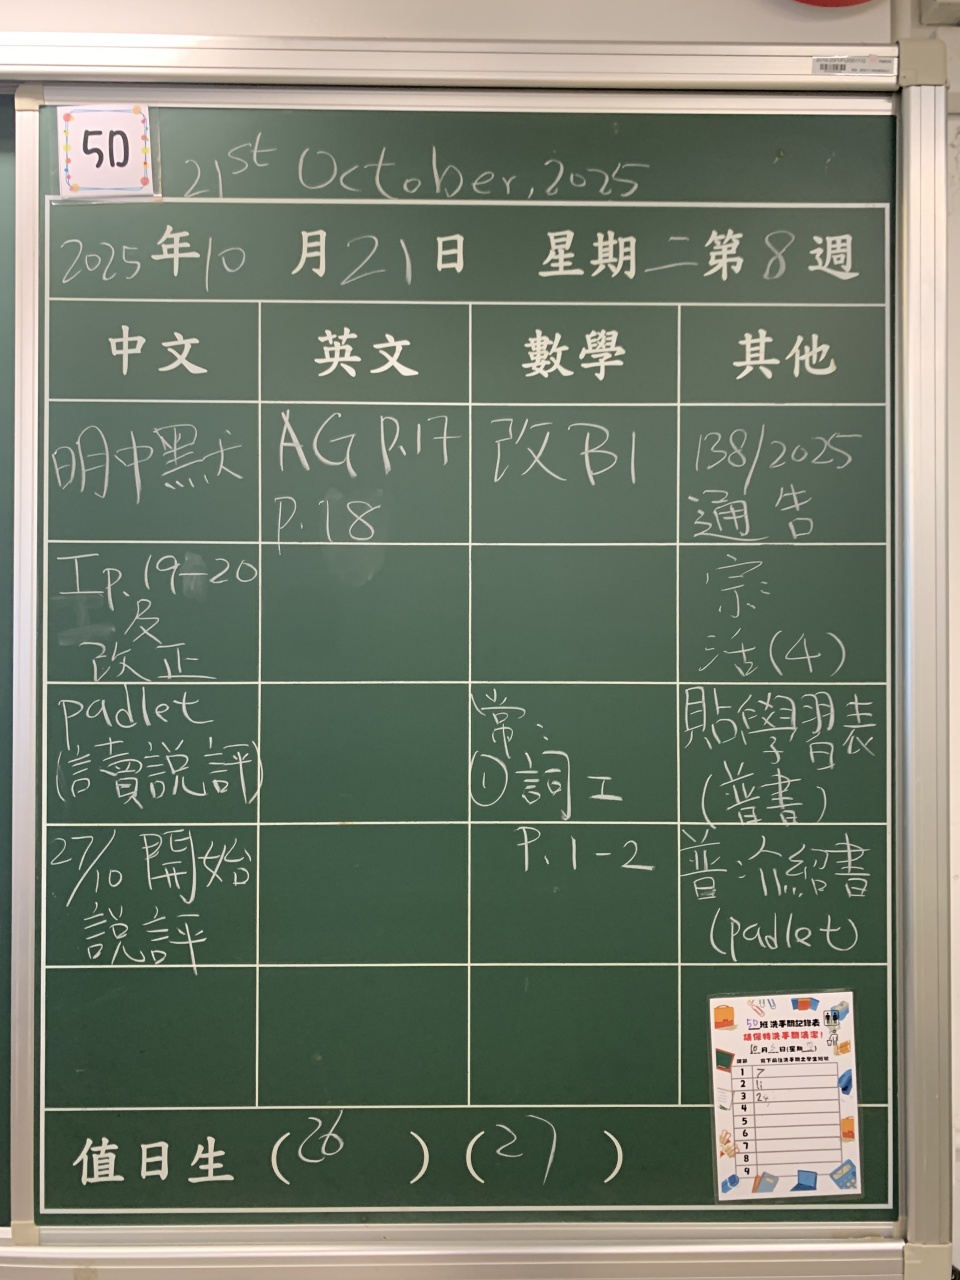 5D
21st October, 2025
2025年10月21日 星期二第8週
中文 英文 數學 其他
明中默
AG P.17
P.18
改B1
138/2025
通告
工p.19-20
及
改正
宗:
活(4)
padlet
(讀說評)
常:
①詞工
貼學習表
(普書)
27/10 開始
說評
P.1-2
普:介紹書
(padlet)
5D班洗手間記錄表
請保持洗手間清潔!
10月 日(星期 )
1 7
2 11
3 24
4
5
6
7
8
9
值日生 (26) (27)